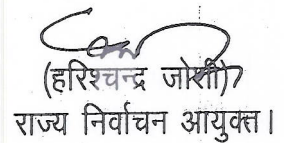 (हरिश्चन्द्र जोशी)
राज्य निर्वाचन आयुक्त।